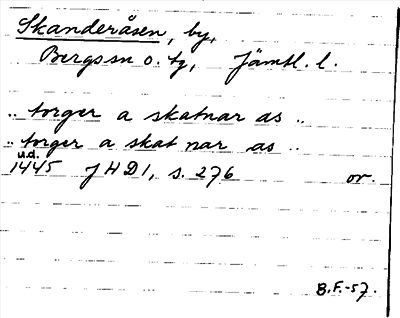 Skanderåsen, by,
Bergs sn o. tg, Jämtl. l.
.. torger a skatnar as ..
.. torger a skat nar as ..
u.d.
1445 JHD1, s. 276 or.
B.F.-57.